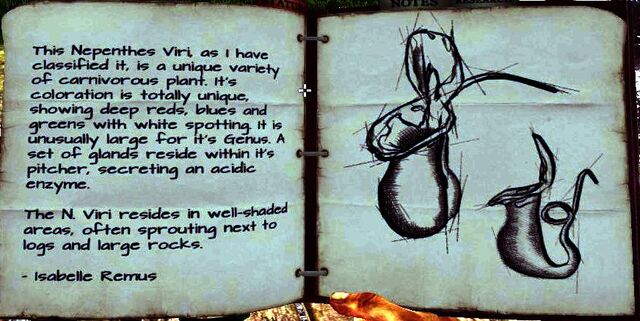 NOTES
This Nepenthes Viri, as I have
classified it, is a unique variety
of carnivorous plant. It's
coloration is totally unique,
showing deep reds, blues and
greens with white spotting. It is
unusually large for it's Genus. A
set of glands reside within it's
pitcher, secreting an acidic
enzyme.
The N. Viri resides in well-shaded
areas, often sprouting next to
logs and large rocks.
- Isabelle Remus